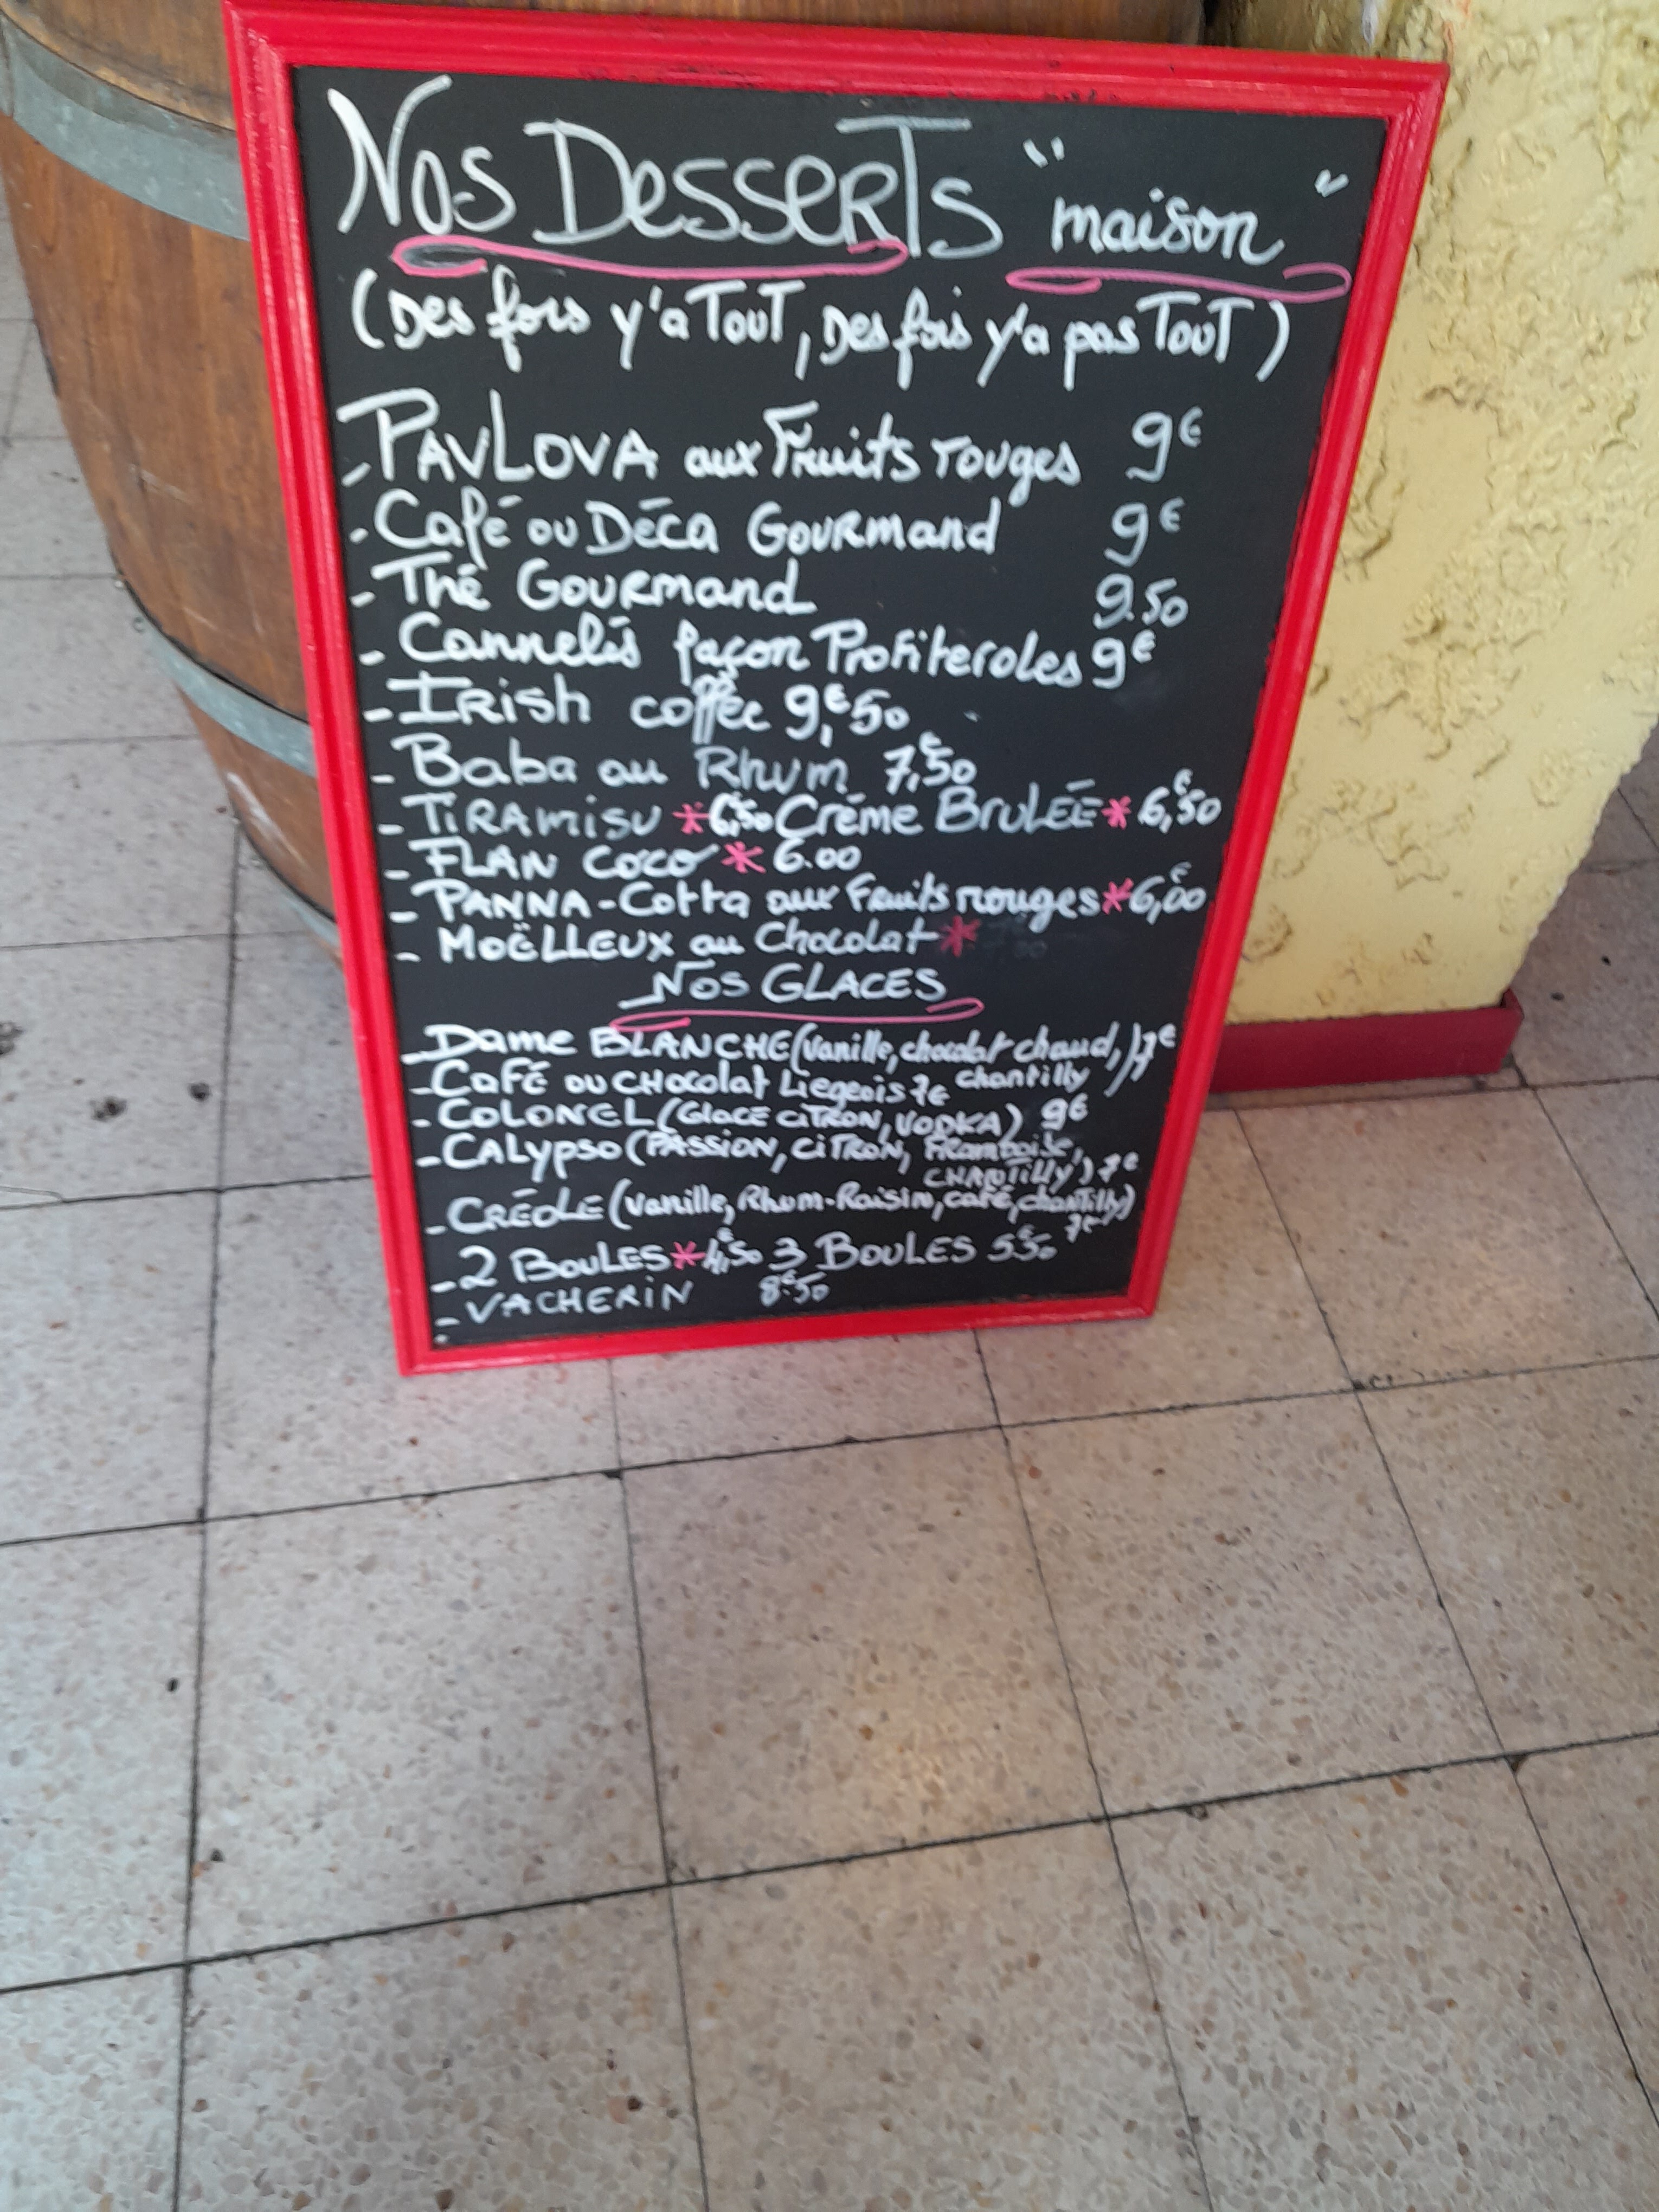 Nos Desserts "maison"
(Des fois y'a Tout, Des fois y'a pas Tout)
- PAVLOVA aux Fruits rouges 9€
- Café ou Déca Gourmand 9€
- Thé Gourmand 9.50
- Cannelés façon Profiteroles 9€
- Irish coffee 9,€50
- Baba au Rhum 7,€50
- TIRAMISU *6,€50 Crème BRULÉE* 6,€50
- FLAN COCO * 6.00
- PANNA-Cotta aux Fruits rouges* 6,€00
- MOËLLEUX au Chocolat *
NOS GLACES
- Dame BLANCHE (vanille, chocolat chaud, chantilly) 7€
- Café ou CHocolat Liegeois 7€
- COLONEL (Glace CITRON, VODKA) 9€
- CALypso (PASSION, CITRON, Framboise,
CHANTilly) 7€
- CRÉOLE (vanille, Rhum-Raisin, café, chantilly)
7€
- 2 BOULES * 4,€50 3 BOULES 5€50
- VACHERIN 8€50